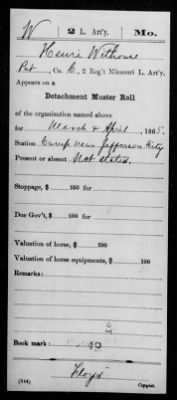 W 2 L. Art'y. Mo.
Henri
Pvt, Co. C, 2 Reg't Missouri L. Art'y.
Appears on a
Detachment Muster Roll
of the organization named above
for March & April, 1865.
Station Camp near Jefferson City
Present or absent Not stated.
Stoppage, $ 100 for
Due Gov't, $ 100 for
Valuation of horse, $ 100
Valuation of horse equipments, $ 100
Remarks:
Book mark:
Floyd
(544) Copyist.